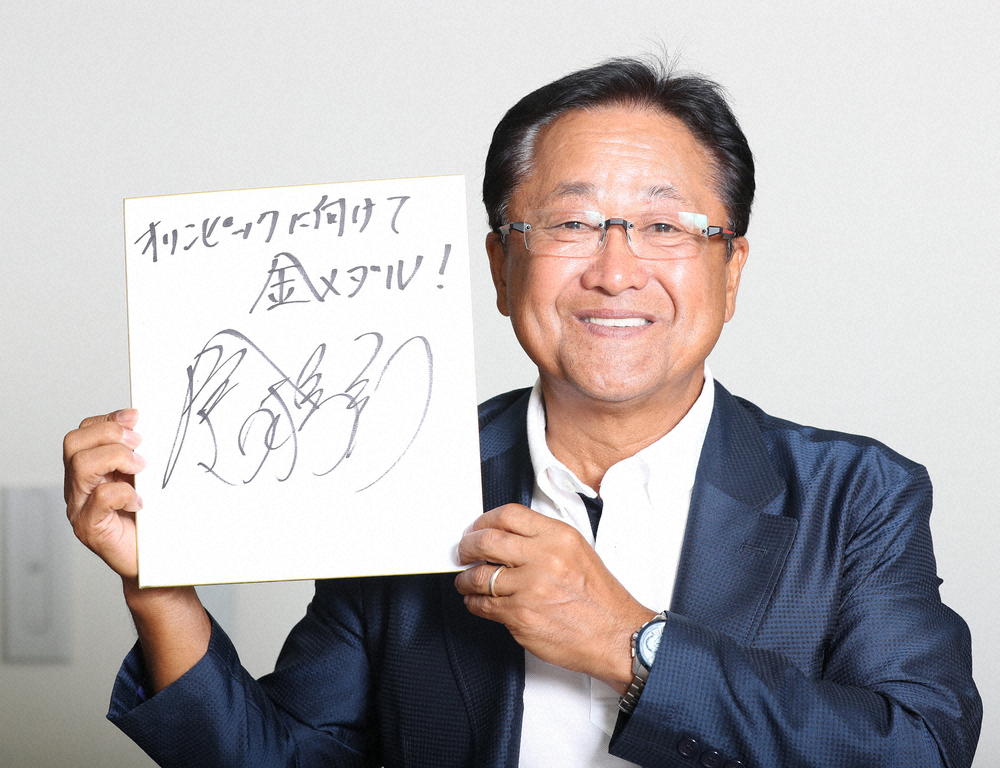 オリンピックに向けて
金メダル!